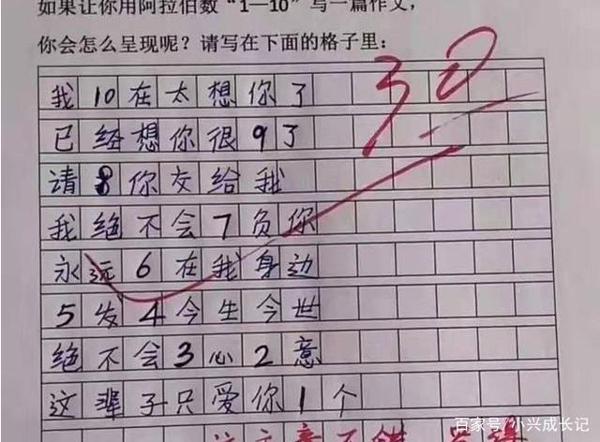 如果让你用阿拉伯数“1—10”写一篇作文，
你会怎么呈现呢？请写在下面的格子里：
我10在太想你了
已经想你很9了
请8你交给我
我绝不会7负你
永远6在我身边
5发4今生今世
绝不会3心2意
这辈子只爱你1个
30
百家号/小兴成长记